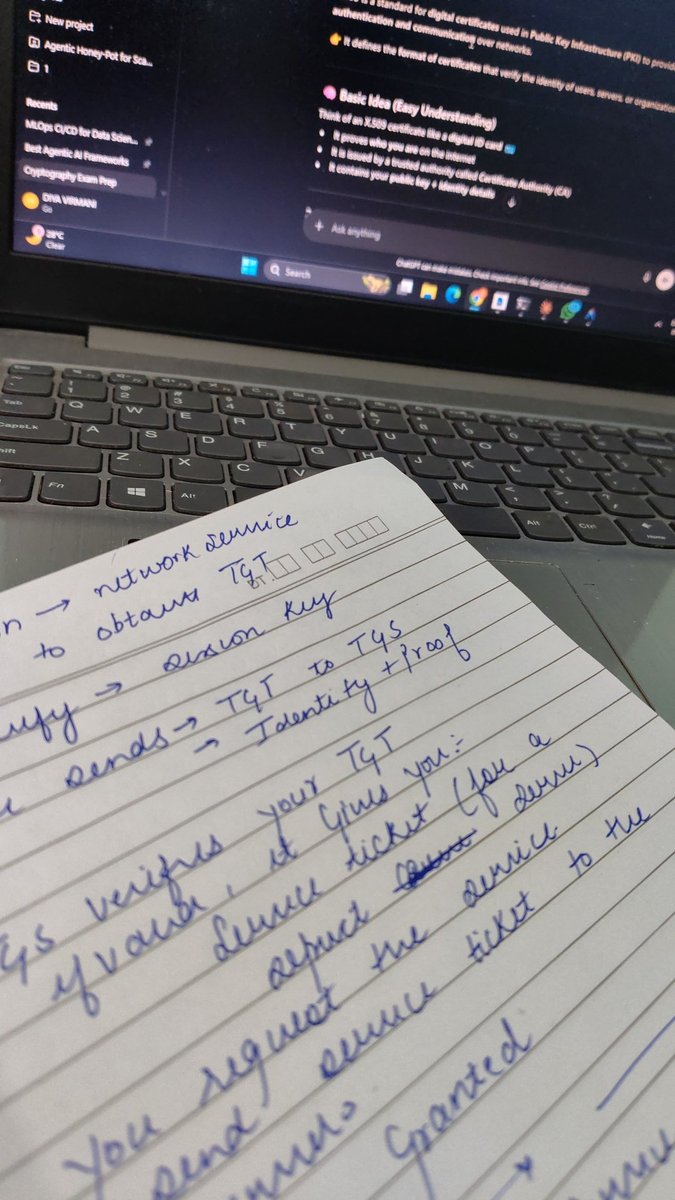 New project
Agentic Honey-Pot for Sca...
1
Recents
MLOps CI/CD for Data Scien...
Best Agentic AI Frameworks
Cryptography Exam Prep
DIVA VIRMANI
Go
28°C
Clear
is a standard for digital certificates used in Public Key Infrastructure (PKI) to provid
authentication and communication over networks.
👉 It defines the format of certificates that verify the identity of users, servers, or organization
🧠 Basic Idea (Easy Understanding)
Think of an X.509 certificate like a digital ID card 🪪
It proves who you are on the internet
It is issued by a trusted authority called Certificate Authority (CA)
It contains your public key + identity details
+ Ask anything
ChatGPT can make mistakes. Check important info. See Cookie Preferences.
Search
Tab
Q W E R T Y U I O P
CapsLk A S D F G H J K L
Z X C V M
Fn Alt Alt Ctrl Home
→ network service
to obtains TGT
DT.
→ session key
sends → TGT to TGS
→ Identity + Proof
GS verifies your TGT
if valid, it gives you:-
service ticket (for a
You request the service
send service ticket to the
Granted